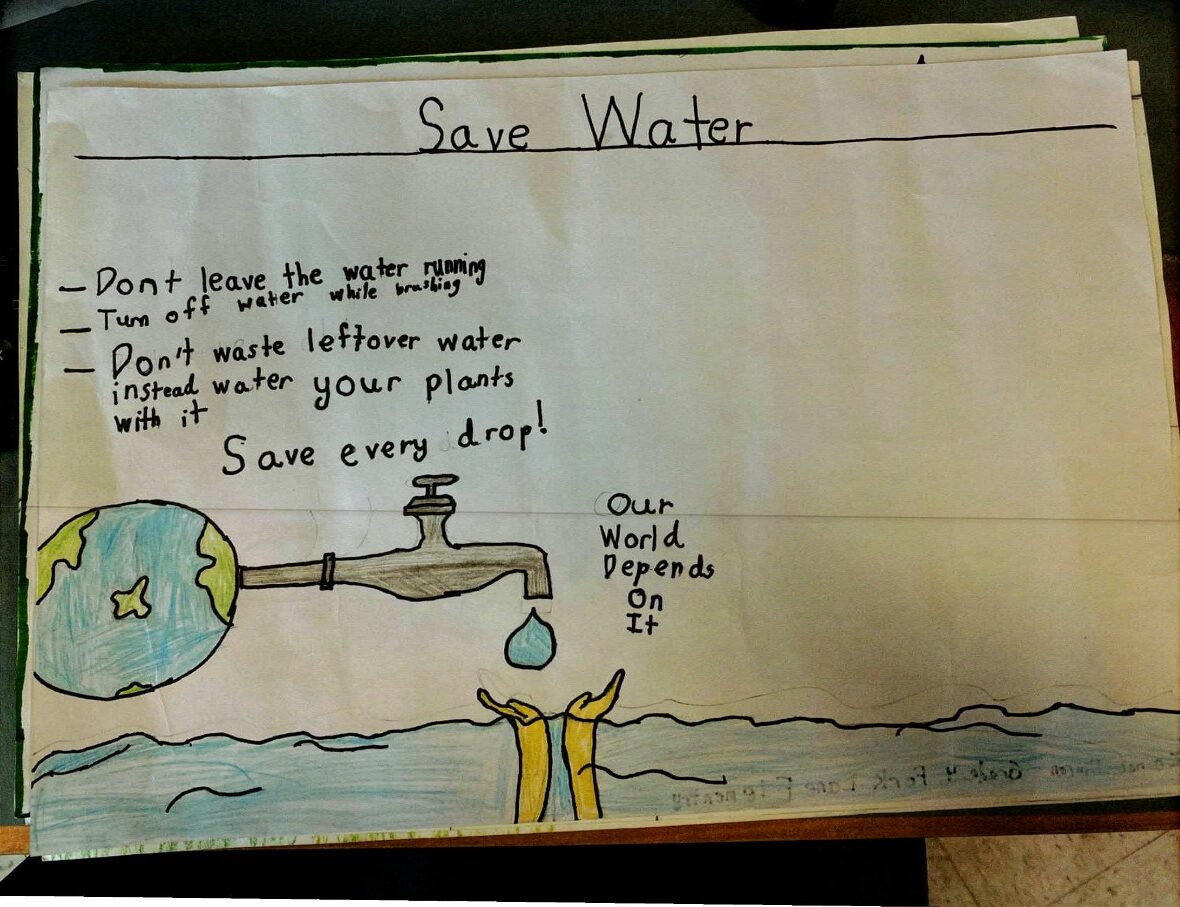 Save Water
– Dont leave the water running
– Turn off water while brushing
– Don't waste leftover water
instead water your plants
with it
Save every drop!
Our
World
Depends
On
It
Grade 4 Fork Lane Elementry